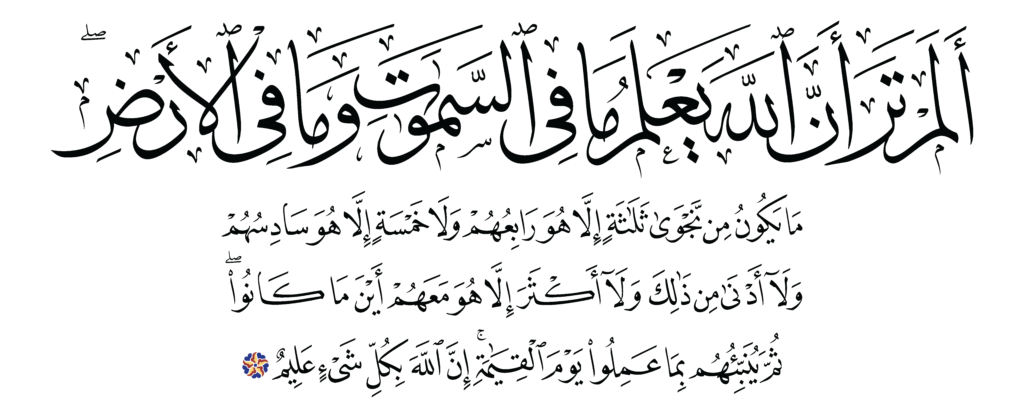 أَلَمْ تَرَ أَنَّ ٱللَّهَ يَعْلَمُ مَا فِى ٱلسَّمَٰوَٰتِ وَمَا فِى ٱلْأَرْضِ ۖ
مَا يَكُونُ مِن نَّجْوَىٰ ثَلَٰثَةٍ إِلَّا هُوَ رَابِعُهُمْ وَلَا خَمْسَةٍ إِلَّا هُوَ سَادِسُهُمْ
وَلَآ أَدْنَىٰ مِن ذَٰلِكَ وَلَآ أَكْثَرَ إِلَّا هُوَ مَعَهُمْ أَيْنَ مَا كَانُوا۟ ۖ
ثُمَّ يُنَبِّئُهُم بِمَا عَمِلُوا۟ يَوْمَ ٱلْقِيَٰمَةِ ۚ إِنَّ ٱللَّهَ بِكُلِّ شَىْءٍ عَلِيمٌ